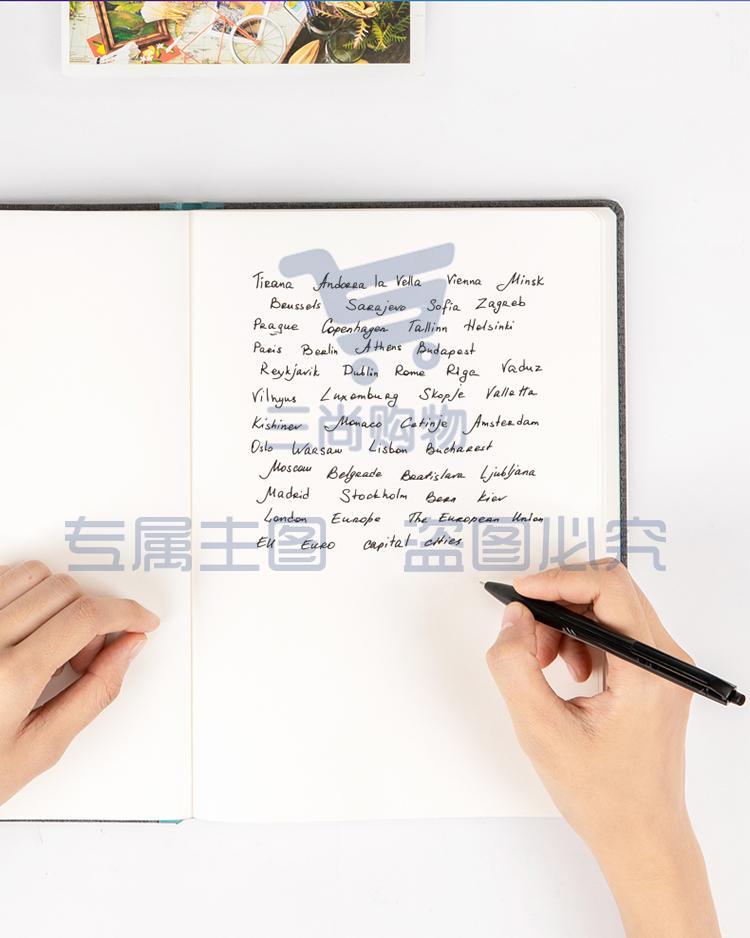 Tirana Andorra la Vella Vienna Minsk
Brussels Sarajevo Sofia Zagreb
Prague Copenhagen Tallinn Helsinki
Paris Berlin Athens Budapest
Reykjavik Dublin Rome Riga Vaduz
Vilnyus Luxemburg Skopje Valletta
Kishinev Monaco Cetinje Amsterdam
三尚购物
Oslo Warsaw Lisbon Bucharest
Moscow Belgrade Bratislava Ljubljana
Madrid Stockholm Bern Kiev
London Europe The European Union
专属主图 盗图必究
EU Euro capital cities